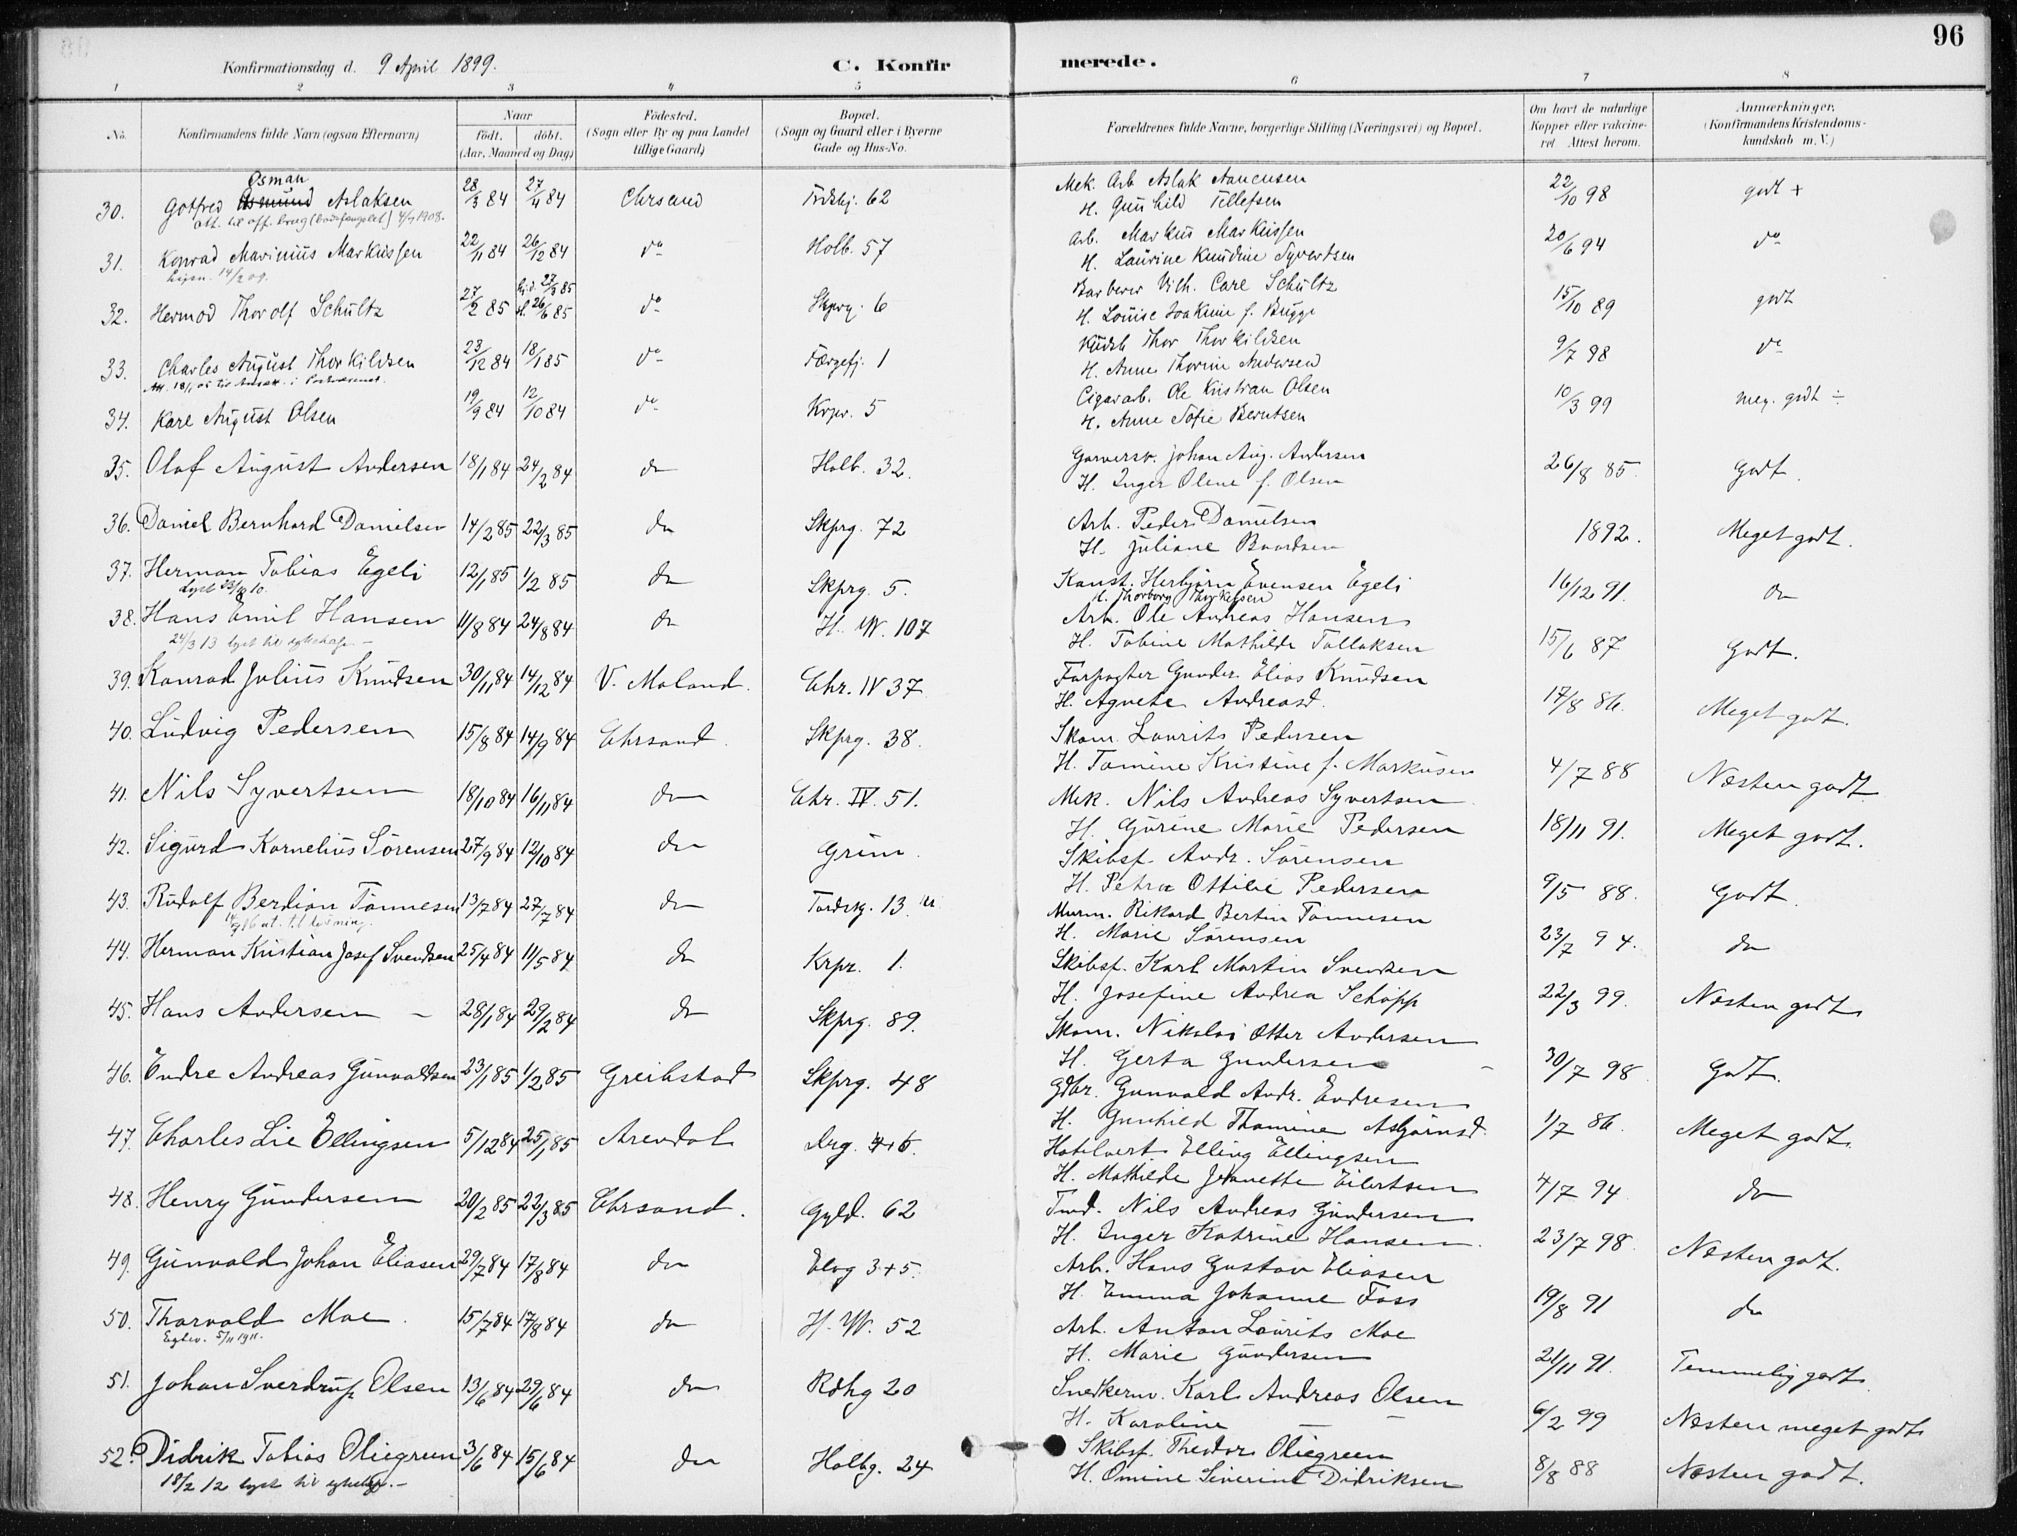 96
Konfirmationsdag d. 9 April 1899. C. Konfir merede.
1 2 3 4 5 6 7 8
No. Konfirmandens fulde Navn (ogsaa Efternavn) Naar født. døbt. (Aar, Maaned og Dag) Fødested. (Sogn eller By og paa Landet tillige Gaard) Bopæl. (Sogn og Gaard eller i Byerne Gade og Hus-No. Forældrenes fulde Navne, borgerlige Stilling (Næringsvei) og Bopæl. Om havt de naturlige Kopper eller vakcineret Attest herom. Anmærkninger. (Konfirmandens Kristendomskundskab m. V.)
Osman
30. Gotfred Asmund Aslaksen 28/3 84 27/4 84 Chrsand 62 Mek. Arb Aslak Aanensen 22/10 98 godt +
H. Gunhild Tellefsen
31. Konrad Marinius Markussen 22/11 84 26/12 84 do Holb. 57 Arb. Markus Markussen 20/6 94 do
14/2 09. H. Laurine Knudine Syvertsen
32. Hermod Thorolf Schultz 27/2 85 27/3 85 H. 26/6 85 do Skprg. 6 Barberer Vilh. Carl Schultz 15/10 89 godt
H. Louise Joakime f. Bugge
33. Charles August Thorkildsen 23/12 84 18/1 85 do Færgefj. 1 Kudsk Thor Thorkildsen 9/7 98 do
H. Anne Thorine Andersen
34. Karl August Olsen 19/9 84 12/10 84 do Krpr. 5 Cigararb. Ole Kristian Olsen 10/3 99 meg. godt ÷
H. Anne Sofie Berntsen
35. Olaf August Andersen 18/1 84 24/2 84 do Holb. 32. Garversv. Johan Aug. Andersen 26/8 85. Godt.
H. Inger Olene f. Olsen
36. Daniel Bernhard Danielsen 14/2 85 22/3 85 do Skprg. 72 Arb. Peder Danielsen 1892. Meget godt.
H. Juliane Baardsen
37. Herman Tobias Egeli 12/1 85 1/2 85 do Skprg. 5. Konst. Herbjørn Evensen Egeli 16/12 91. do
H. Thorborg Thorkelsen
38. Hans Emil Hansen 11/8 84 24/8 84 do H. W. 107 Arb. Ole Andreas Hansen 15/6 87 Godt.
24/3 13 lyst til H. Tobine Mathilde Tallaksen
39. Konrad Julius Knudsen 30/11 84 14/12 84 V. Moland. Chr. IV 37 Forpagter Gunder Elias Knudsen 17/8 86. Meget godt.
H. Agnete Andreasd.
40. Ludvig Pedersen 15/8 84 14/9 84 Chrsand. Skprg. 38. Skom. Laurits Pedersen 4/7 88 Næsten godt
H. Tomine Kristine f. Markusen
41. Nils Syvertsen 18/10 84 16/11 84 do Chr. IV. 51. Mek. Nils Andreas Syvertsen 18/11 91. Meget godt.
H. Gurine Marie Pedersen
42. Sigurd Kornelius Sørensen 27/9 84 12/10 84 do Grim. Skibsf. Andr. Sørensen 9/5 88. Godt.
H. Petra Ottilie Pedersen
43. Rudolf Berdion Tønnesen 13/7 84 27/7 84 do Tordsg. 13. Murm. Rikard Bertin Tønnesen 23/7 94. do
H. Marie Sørensen
44. Herman Kristian Josef Svendsen 25/4 84 11/5 84 do Krpr. 1. Skibsf. Karl Martin Svendsen 22/3 99. Næsten godt
H. Josefine Andrea Schøpp
45. Hans Andersen 28/1 84 29/2 84 do Skprg. 89. Skom. Nikolai Otter Andersen 30/7 98. Godt.
H. Gerta Gundersen
46. Endre Andreas Gunvaldsen 23/1 85 1/2 85 Greibstad Skprg. 48 Gdbr. Gunvald Andr. Endresen 1/7 86. Meget godt.
H. Gunhild Thomine Asbjørnsd.
47. Charles Lie Ellingsen 5/12 84 25/1 85 Arendal Drg. 4+6. Hotelvert Elling Ellingsen 4/7 94 do
H. Mathilde Jeanette Eilertsen
48. Henry Gundersen 20/2 85 22/3 85 Chrsand. Gyld. 62 Tmd. Nils Andreas Gundersen 23/7 98. Næsten godt.
H. Inger Katrine Hansen.
49. Gunvald Johan Eliasen 29/7 84 17/8 84 do Elvg 3+5. Arb. Hans Gustav Eliasen 19/8 91 do
H. Emma Johanne Foss
50. Thorvald Moe. 15/7 84 17/8 84 do H. W. 52 Arb. Anton Laurits Moe 21/11 91. Temmelig godt.
5/11 1911. H. Marie Gundersen
51. Johan Sverdrup Olsen 13/6 84 29/6 84 do Rdhg 20 Snedkerm. Karl Andreas Olsen 6/2 99 Næsten meget godt
H. Karoline —
52. Didrik Tobias Oliegreen 3/6 84 15/6 84 do Holbg. 24 Skibsf. Theodor Oliegreen 8/8 88 Næsten godt.
18/2 12 lyst til H. Omine Siverine Didriksen